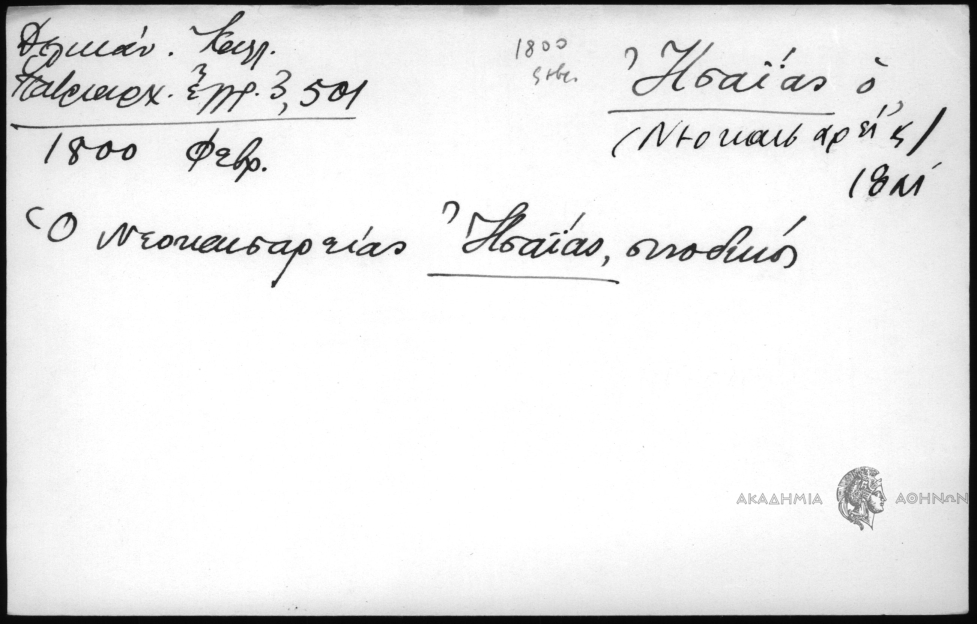 Δελικάν. Καλλ.
Πατριαρχ. Ἔγγρ. 3, 501
1800 Φεβρ.
1800
Φεβρ.
Ἡσαΐας ὁ
(Νεοκαισαρείας)
Ὁ Νεοκαισαρείας Ἡσαΐας, συνοδικός
ΑΚΑΔΗΜΙΑ ΑΘΗΝΩΝ